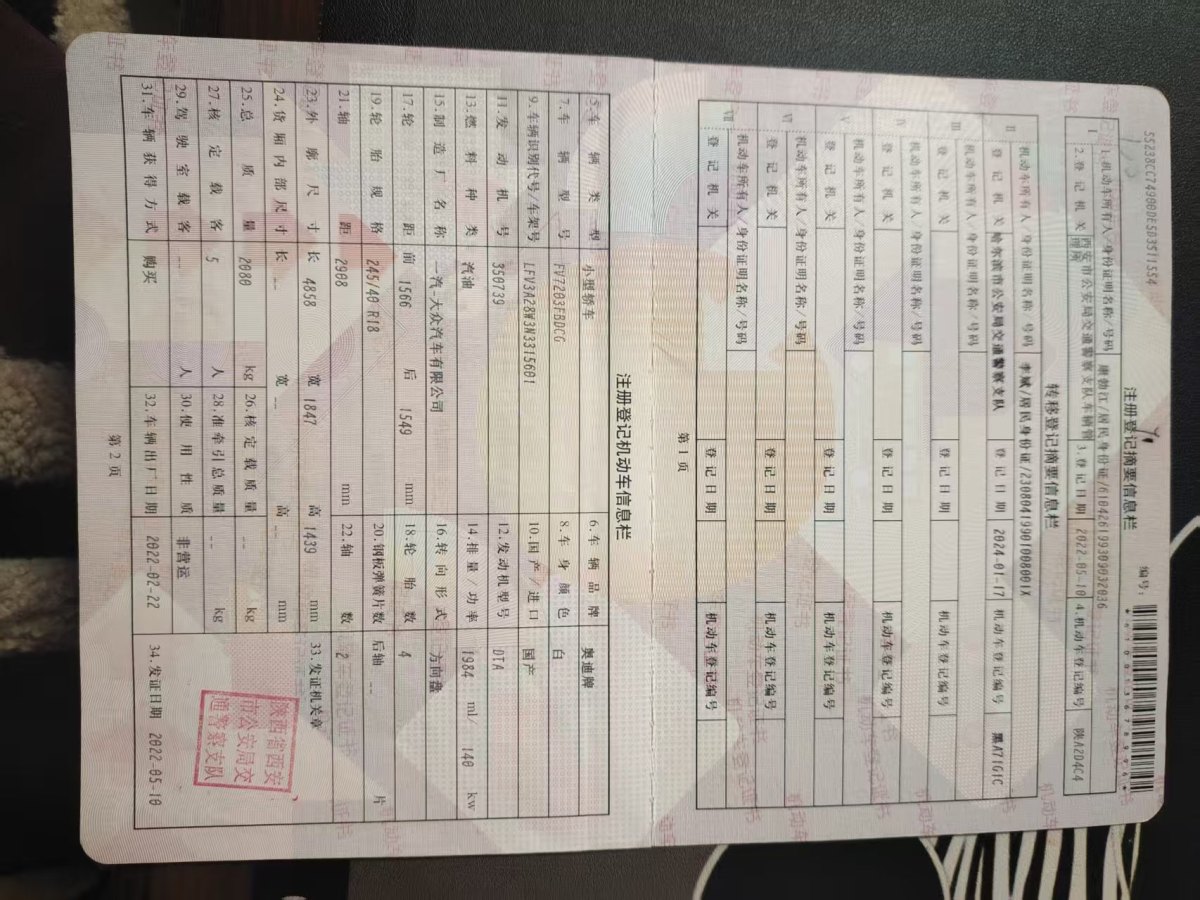 55238CC74900DE5D3511554
注册登记摘要信息栏
编号:
1.机动车所有人/身份证明名称/号码 康勃江/居民身份证/610426199309032036
I 2.登记机关 西安市公安局交通警察支队车辆管理所 3.登记日期 2022-05-10 4.机动车登记编号 陕A2D4C4
转移登记摘要信息栏
II 机动车所有人/身份证明名称/号码 李斌/居民身份证/23080419901008001X
登记机关 哈尔滨市公安局交通警察支队 登记日期 2024-01-17 机动车登记编号 黑A71G1C
III 机动车所有人/身份证明名称/号码
登记机关 登记日期 机动车登记编号
IV 机动车所有人/身份证明名称/号码
登记机关 登记日期 机动车登记编号
V 机动车所有人/身份证明名称/号码
登记机关 登记日期 机动车登记编号
VI 机动车所有人/身份证明名称/号码
登记机关 登记日期 机动车登记编号
VII 机动车所有人/身份证明名称/号码
登记机关 登记日期 机动车登记编号
第1页
注册登记机动车信息栏
5.车辆类型 小型轿车 6.车辆品牌 奥迪牌
7.车辆型号 FV7203FBDCG 8.车身颜色 白
9.车辆识别代号/车架号 LFV3A28W3N3315601 10.国产/进口 国产
11.发动机号 350739 12.发动机型号 DTA
13.燃料种类 汽油 14.排量/功率 1984 ml/ 140 kw
15.制造厂名称 一汽-大众汽车有限公司 16.转向形式 方向盘
17.轮距 前 1566 后 1549 mm 18.轮胎数 4
19.轮胎规格 245/40 R18 20.钢板弹簧片数 后轴 -- 片
21.轴距 2908 mm 22.轴数 2
23.外廓尺寸 长 4858 宽 1847 高 1439 mm 33.发证机关章
24.货厢内部尺寸 长 -- 宽 -- 高 -- mm
25.总质量 2080 kg 26.核定载质量 -- kg
27.核定载客 5 人 28.准牵引总质量 -- kg
29.驾驶室载客 -- 人 30.使用性质 非营运
31.车辆获得方式 购买 32.车辆出厂日期 2022-02-22 34.发证日期 2022-05-10
陕西省西安
市公安局交
通警察支队
第2页